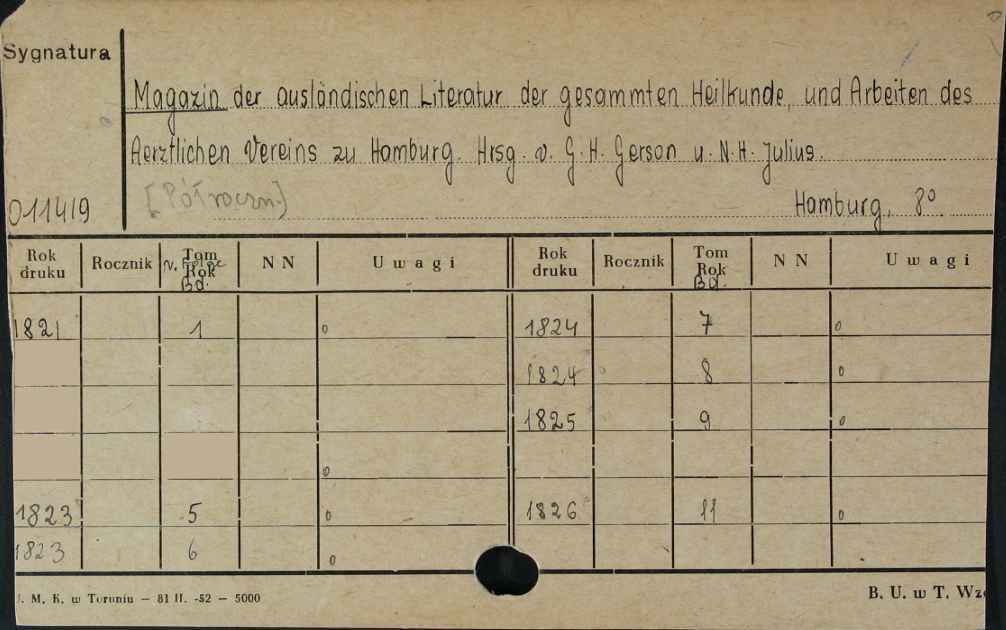 Sygnatura
Magazin der ausländischen Literatur der gesammten Heilkunde, und Arbeiten des
Aerztlichen Vereins zu Hamburg. Hrsg. v. G. H. Gerson u. N. H. Julius.
[Półroczn.]
011419 Hamburg, 8°.
Rok druku Rocznik Tom Rok Bd. NN Uwagi Rok druku Rocznik Tom Rok Bd. NN Uwagi
1821 1 o 1824 7 o
1824 8 o
1825 9 o
o
1823 5 o 1826 11 o
1823 6 o
. M. K. w Toruniu — 81 II. -52 — 5000 B. U. w T.